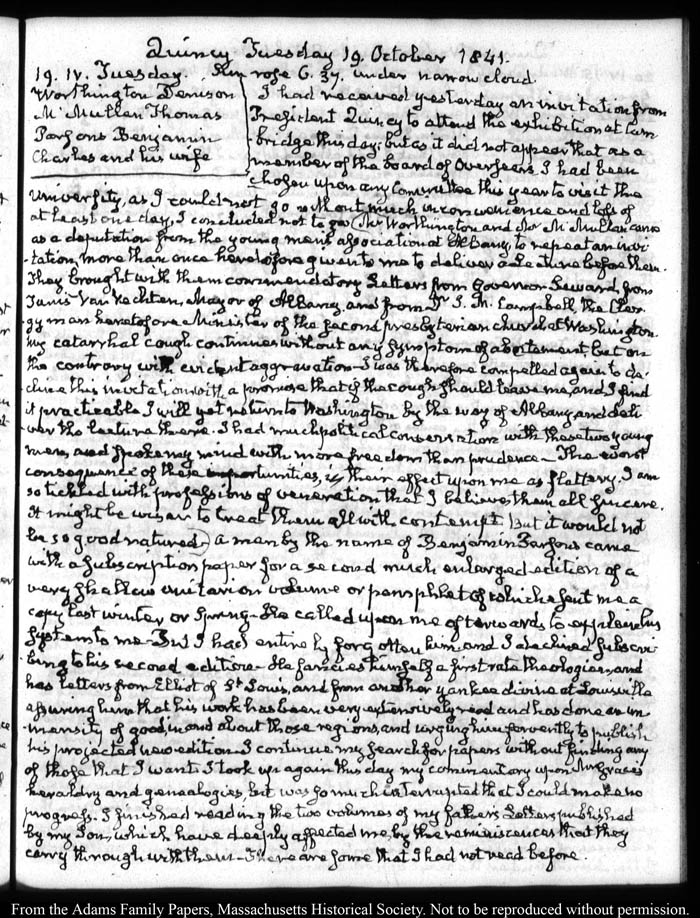 Quincy Tuesday 19. October 1841.
19. IV. Tuesday. Sun rose 6. 37. under narrow cloud.
Worthington Denison
McMullen Thomas
Parsons Benjamin
Charles and his wife
I had received yesterday an invitation from
President Quincy to attend the exhibition at Cam
bridge this day; but as it did not appear that as a
member of the board of Overseers I had been
chosen upon any Committee this year to visit the
University, as I could not go without much inconvenience and loss of
at least one day, I concluded not to go. Mr Worthington and Mr McMullen came
as a deputation from the young men's association at Albany, to repeat an invi
-tation, more than once heretofore given to me to deliver a Lecture before them.
They brought with them commendatory Letters from Governor Seward, from
Tunis Van Vechten, Mayor of Albany, and from Mr J. N. Campbell the Cler
gyman heretofore Minister of the second presbyterian church at Washington.
My catarrhal cough continues without any symptom of abatement, but on
the contrary with evident aggravation. I was therefore compelled again to de-
cline this invitation with a promise that if the cough should leave me, and I find
it practicable I will yet return to Washington by the way of Albany and deli
ver the lecture there. I had much political conversation with these two young
men, and spoke my mind with more freedom than prudence. The worst
consequence of these importunities, is their effect upon me as flattery. I am
so tickled with professions of veneration that I believe them all sincere.
It might be wiser to treat them all with contempt but it would not
be so good natured. A man by the name of Benjamin Parsons came
with a subscription paper for a second much enlarged edition of a
very shallow unitarian volume or pamphlet of which he sent me a
copy last winter or Spring. He called upon me afterwards to explain his
System to me. But I had entirely forgotten him and I declined subscri
bing to his second edition. He fancies himself a first rate theologian, and
has letters from Elliot of St. Louis, and from another yankee divine at Louisville
assuring him that his work has been very extensively read and has done an im
-mensity of good, in and about those regions, and urging him fervently to publish
his projected new edition. I continue my search for papers without finding any
of those that I want. I took up again this day my commentary upon
heraldry and genealogies, but was so much interrupted that I could make no
progress. I finished reading the two volumes of my father's Letters published
by my Son, which have deeply affected me, by the reminiscences that they
carry through with them. There are some that I had not read before.
From the Adams Family Papers, Massachusetts Historical Society. Not to be reproduced without permission.